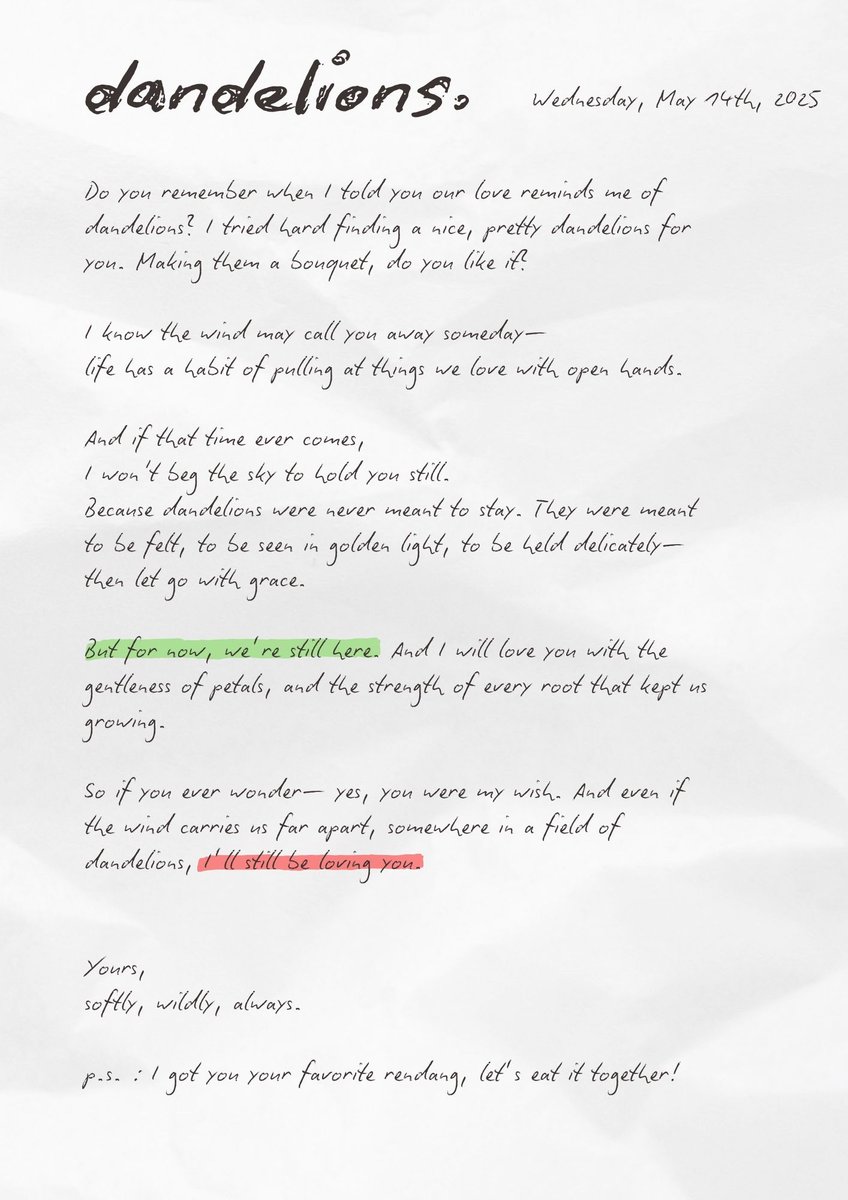 dandelions.
Wednesday, May 14th, 2025
Do you remember when I told you our love reminds me of
dandelions? I tried hard finding a nice, pretty dandelions for
you. Making them a bouquet, do you like it?
I know the wind may call you away someday—
life has a habit of pulling at things we love with open hands.
And if that time ever comes,
I won't beg the sky to hold you still.
Because dandelions were never meant to stay. They were meant
to be felt, to be seen in golden light, to be held delicately—
then let go with grace.
But for now, we're still here. And I will love you with the
gentleness of petals, and the strength of every root that kept us
growing.
So if you ever wonder— yes, you were my wish. And even if
the wind carries us far apart, somewhere in a field of
dandelions, I'll still be loving you.
Yours,
softly, wildly, always.
p.s. : I got you your favorite rendang, let's eat it together!